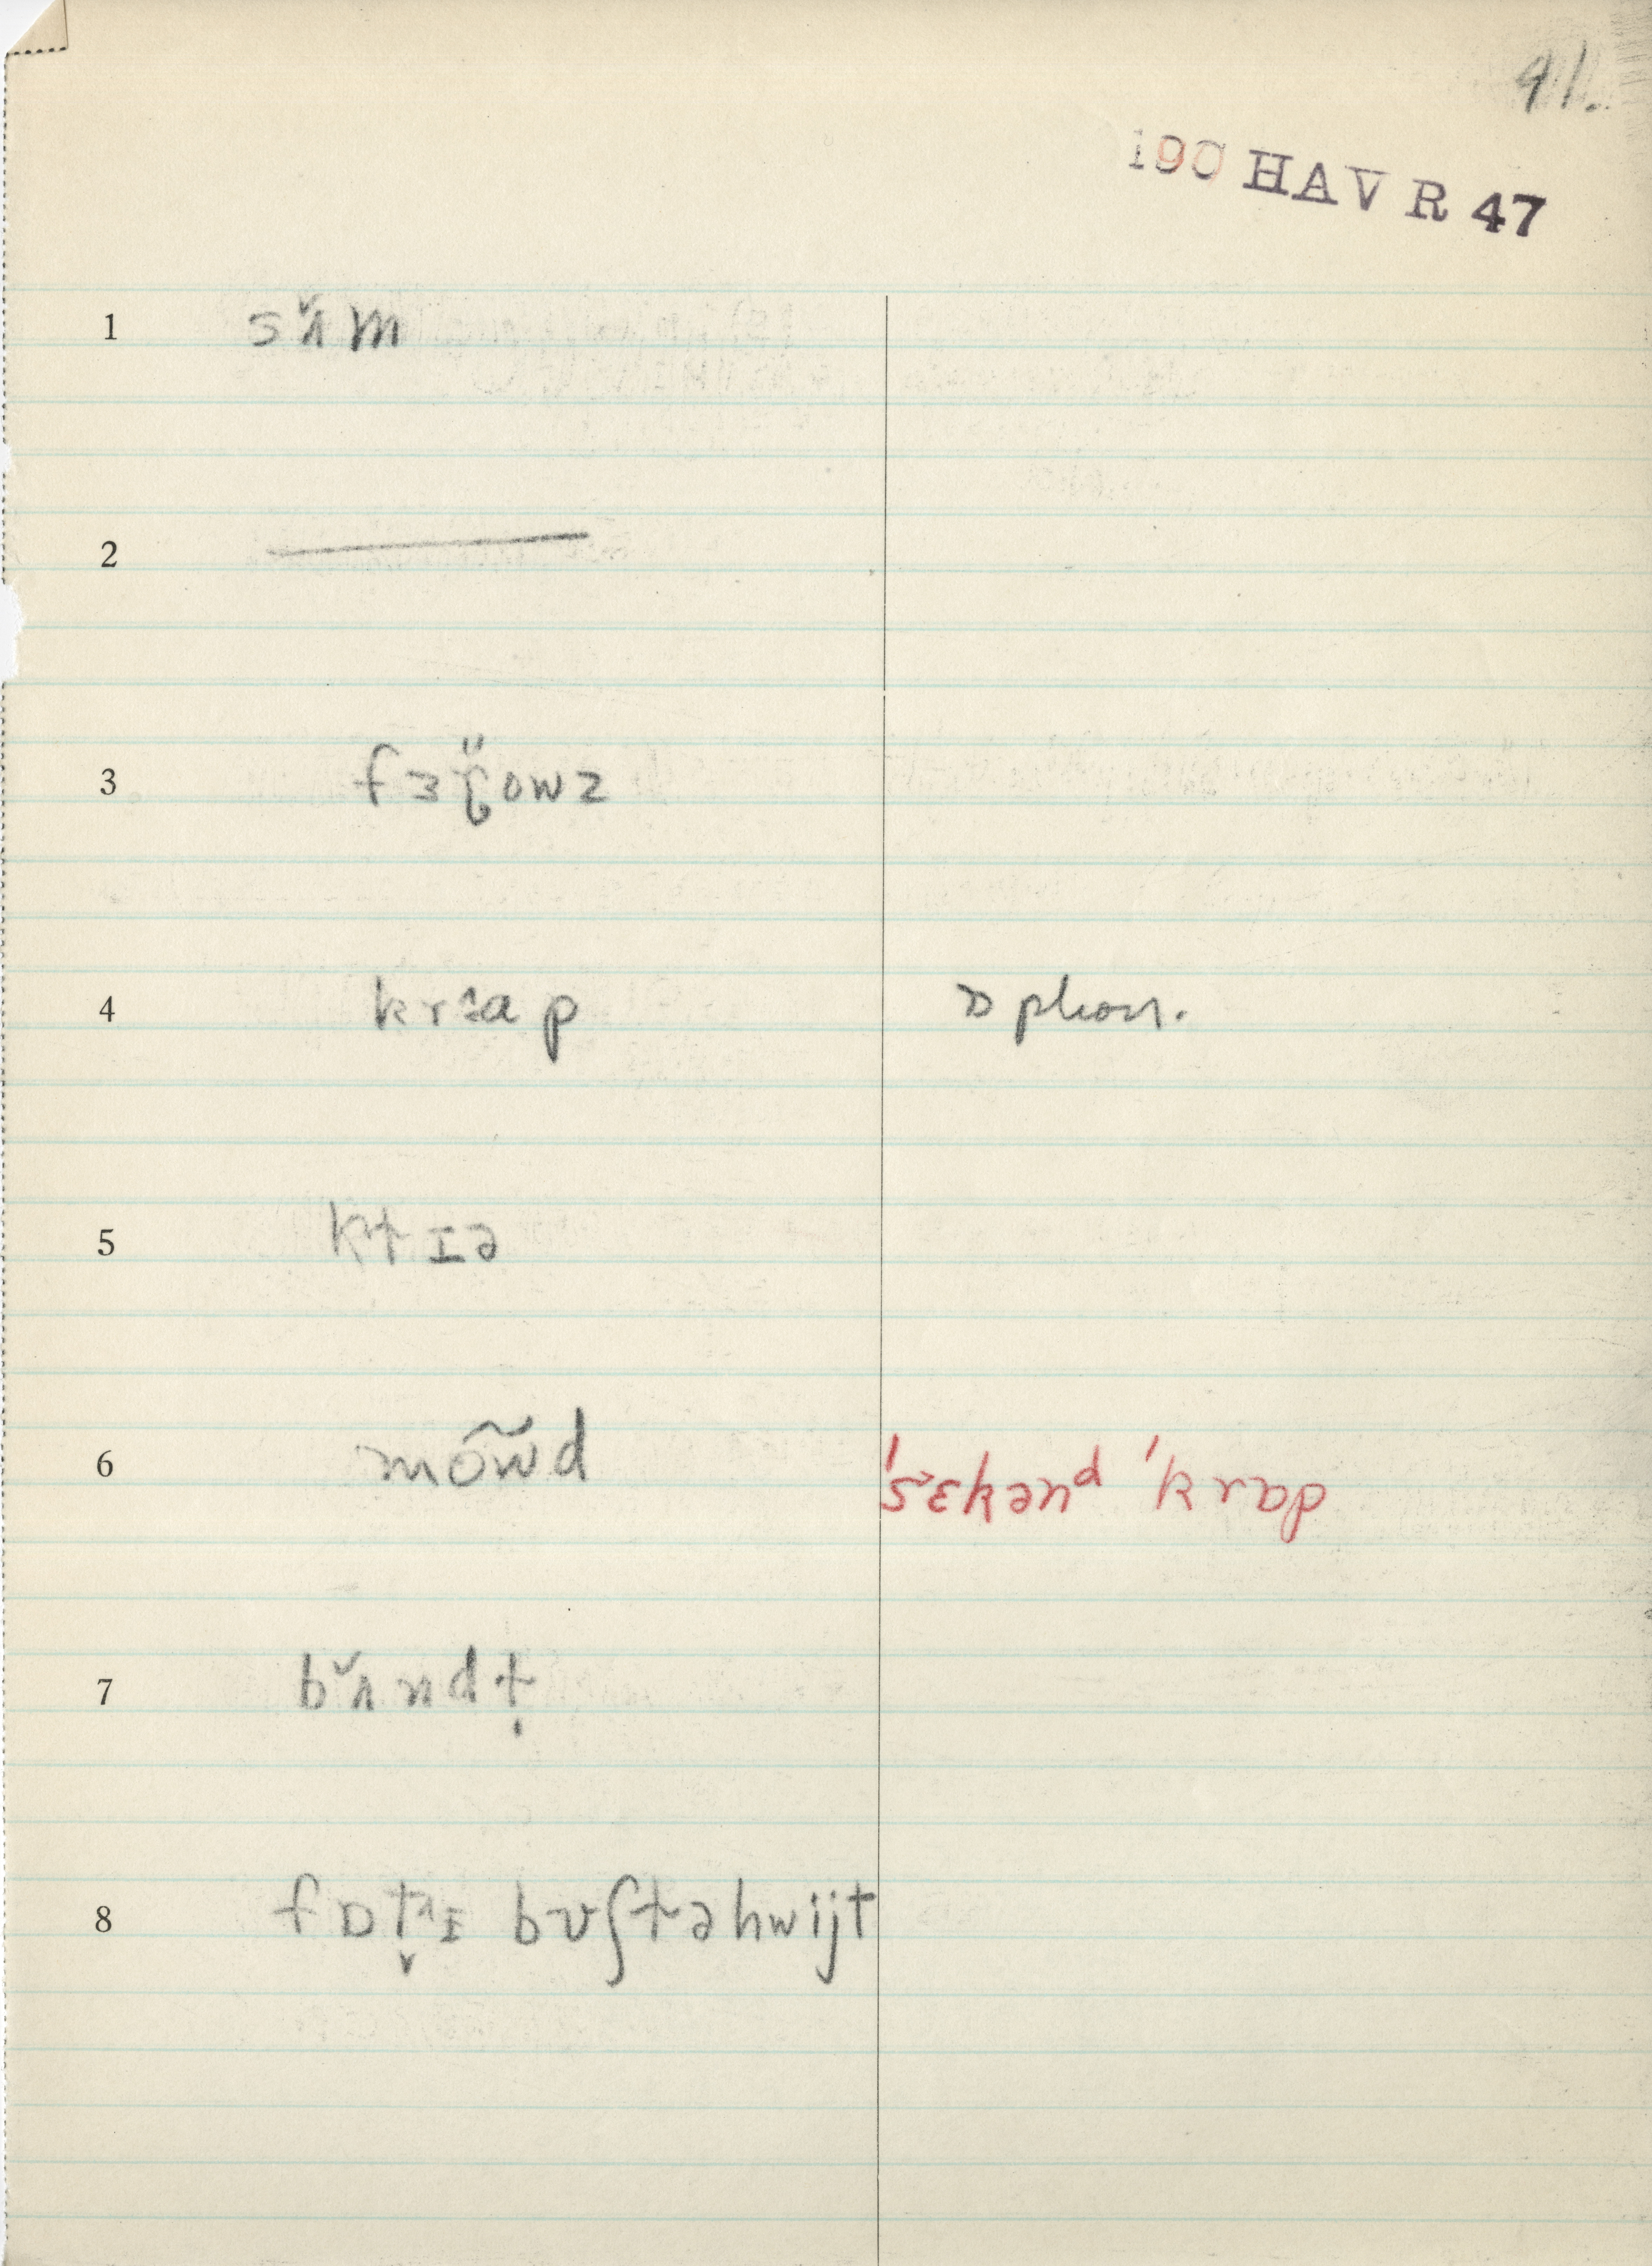 41.
190 HAV R 47
1 sʌ̌m
2 —
3 fɜɼ̈owz
4 krɑp ɒ phon.
5 ktɪə
6 mõw̃d 'sɛkənᵈ 'krɒp
7 bʌ̌ndṭ
8 fɒt̬ɪ bʊʃtəhwijt